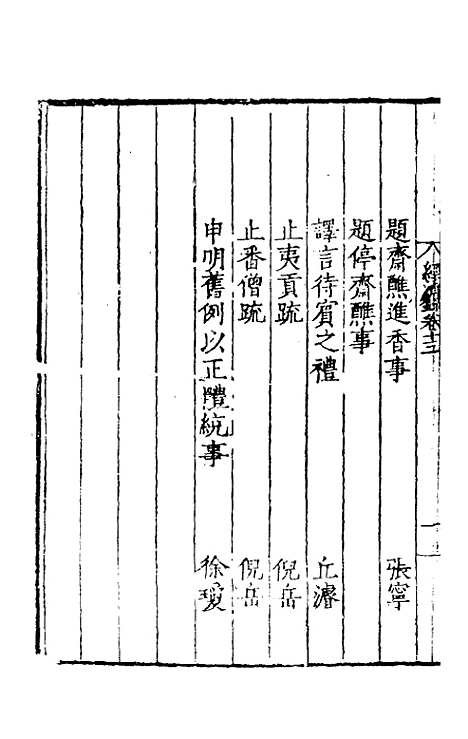 經濟錄卷十三
題齋醮進香事 張寧
題停齋醮事
譯言待賓之禮 丘濬
止夷貢疏 倪岳
止番僧疏 倪岳
申明舊例以正體統事 徐瓊